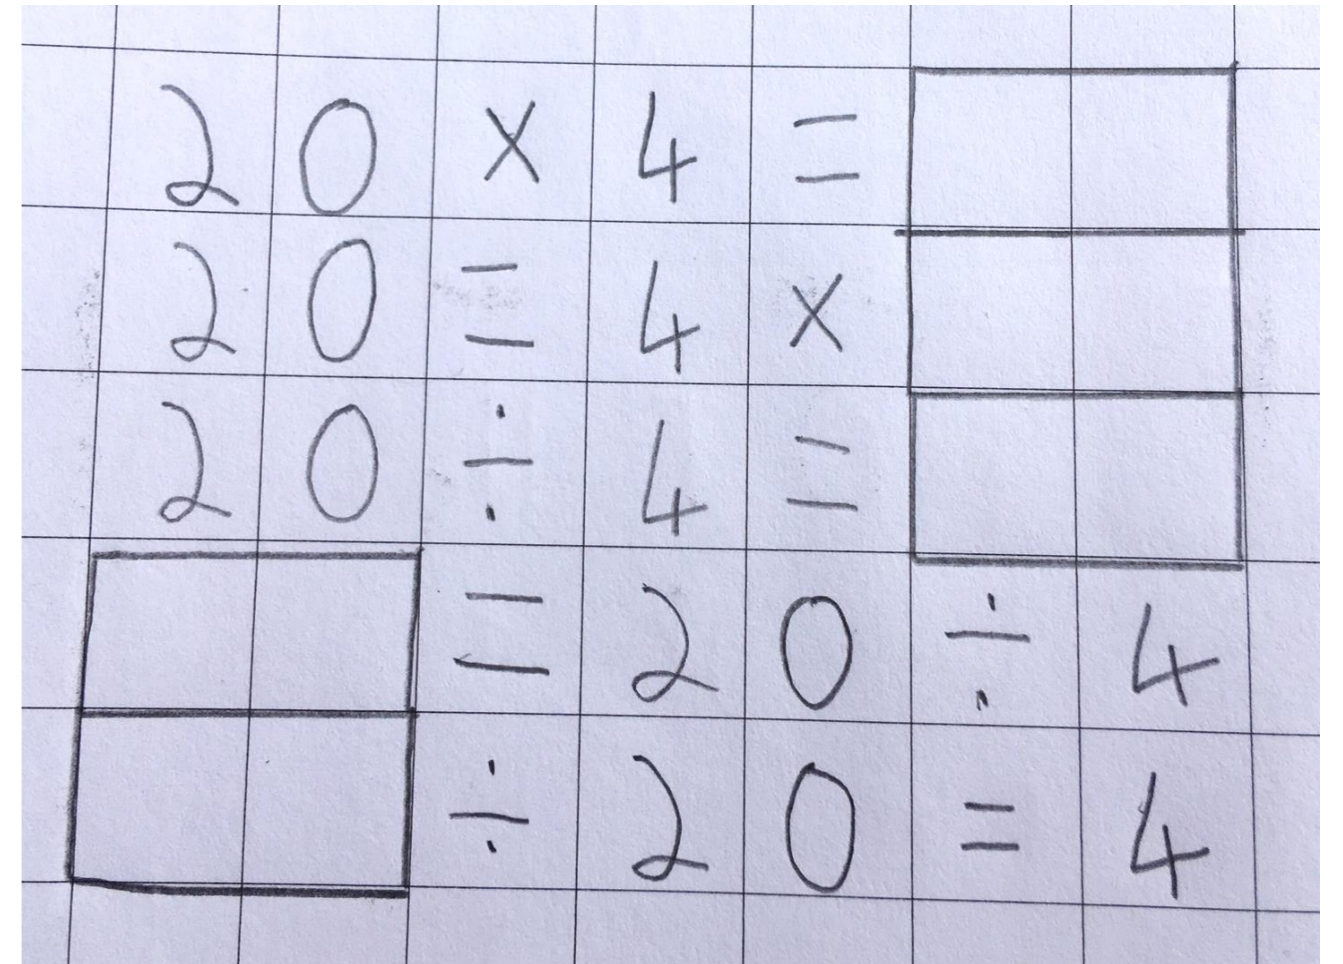 20 × 4 =
20 = 4 ×
20 ÷ 4 =
= 20 ÷ 4
÷ 20 = 4